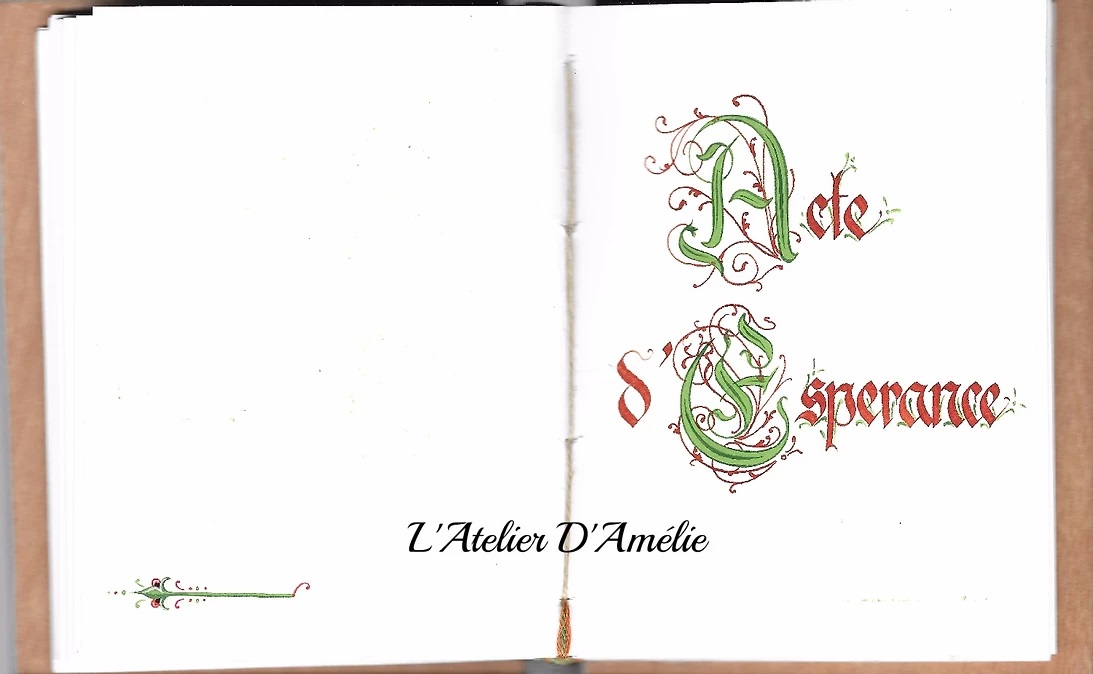 Acte
d'Esperance
L'Atelier D'Amélie